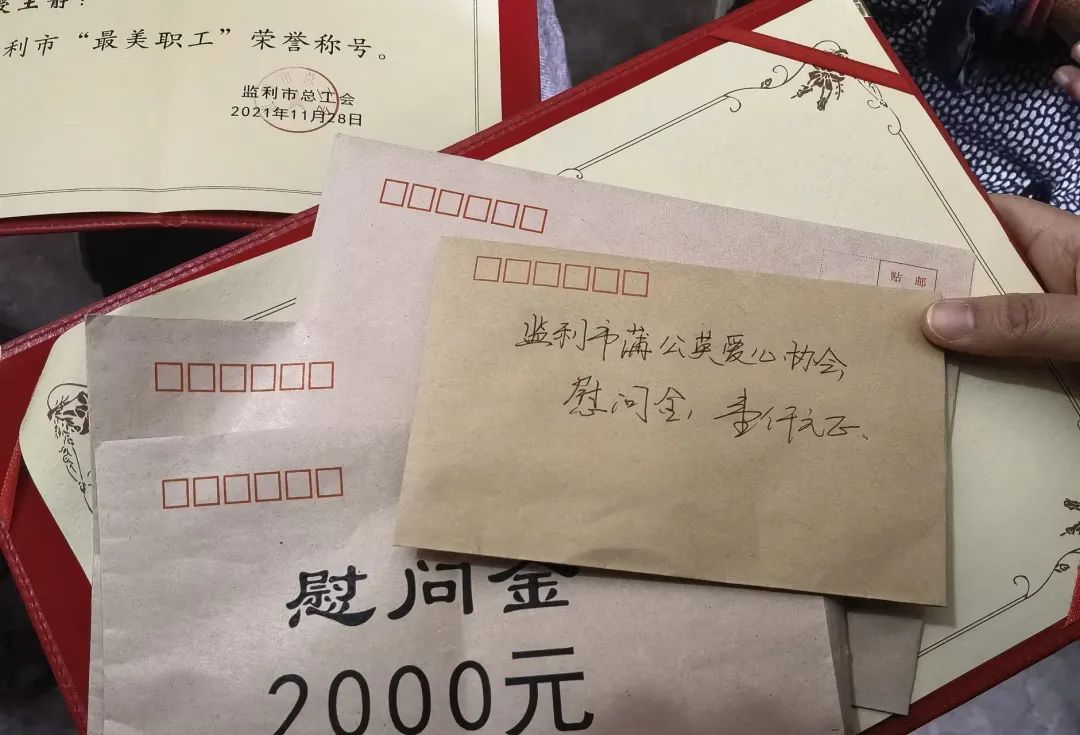 利市“最美职工”荣誉称号。
监利市总工会
2021年11月28日
贴 邮
监利市蒲公英爱心协会
慰问金，壹仟元正、
慰问金
2000元